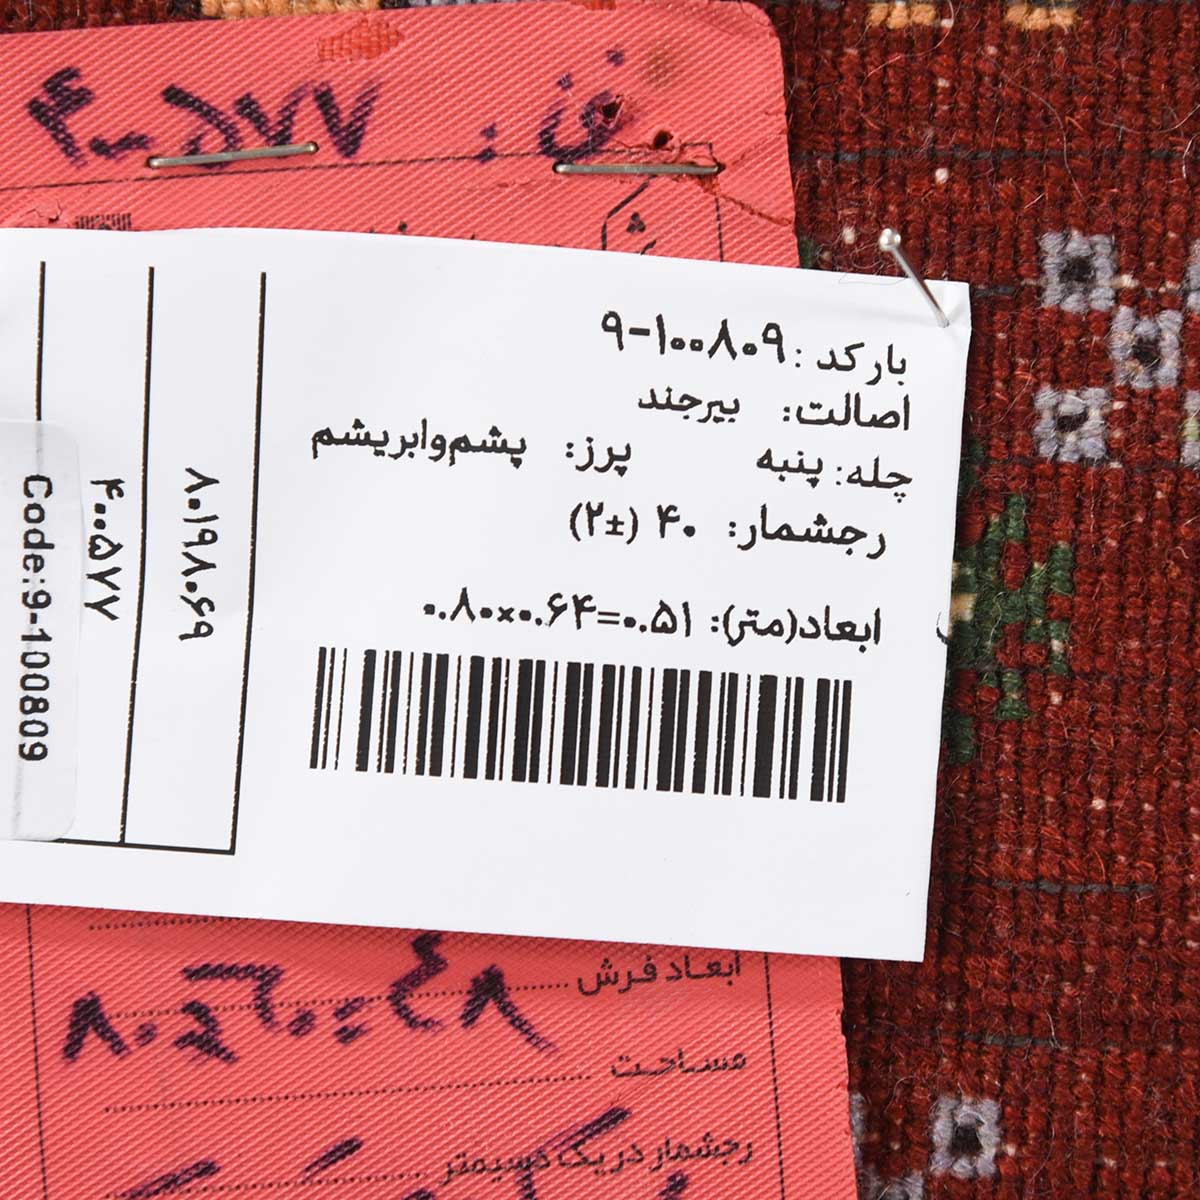 ف : ۴۰۰۵۷۷
بارکد : ۹-۱۰۰۸۰۹
اصالت: بیرجند
چله: پنبه پرز: پشم‌وابریشم
رجشمار: ۴۰ (±۲)
ابعاد(متر): ۰.۸۰×۰.۶۴=۰.۵۱
۸۰۱۹۸۰۶۹
۴۰۰۵۷۷
Code:9-100809
ابعاد فرش
مساحت
رجشمار در یک دسیمتر